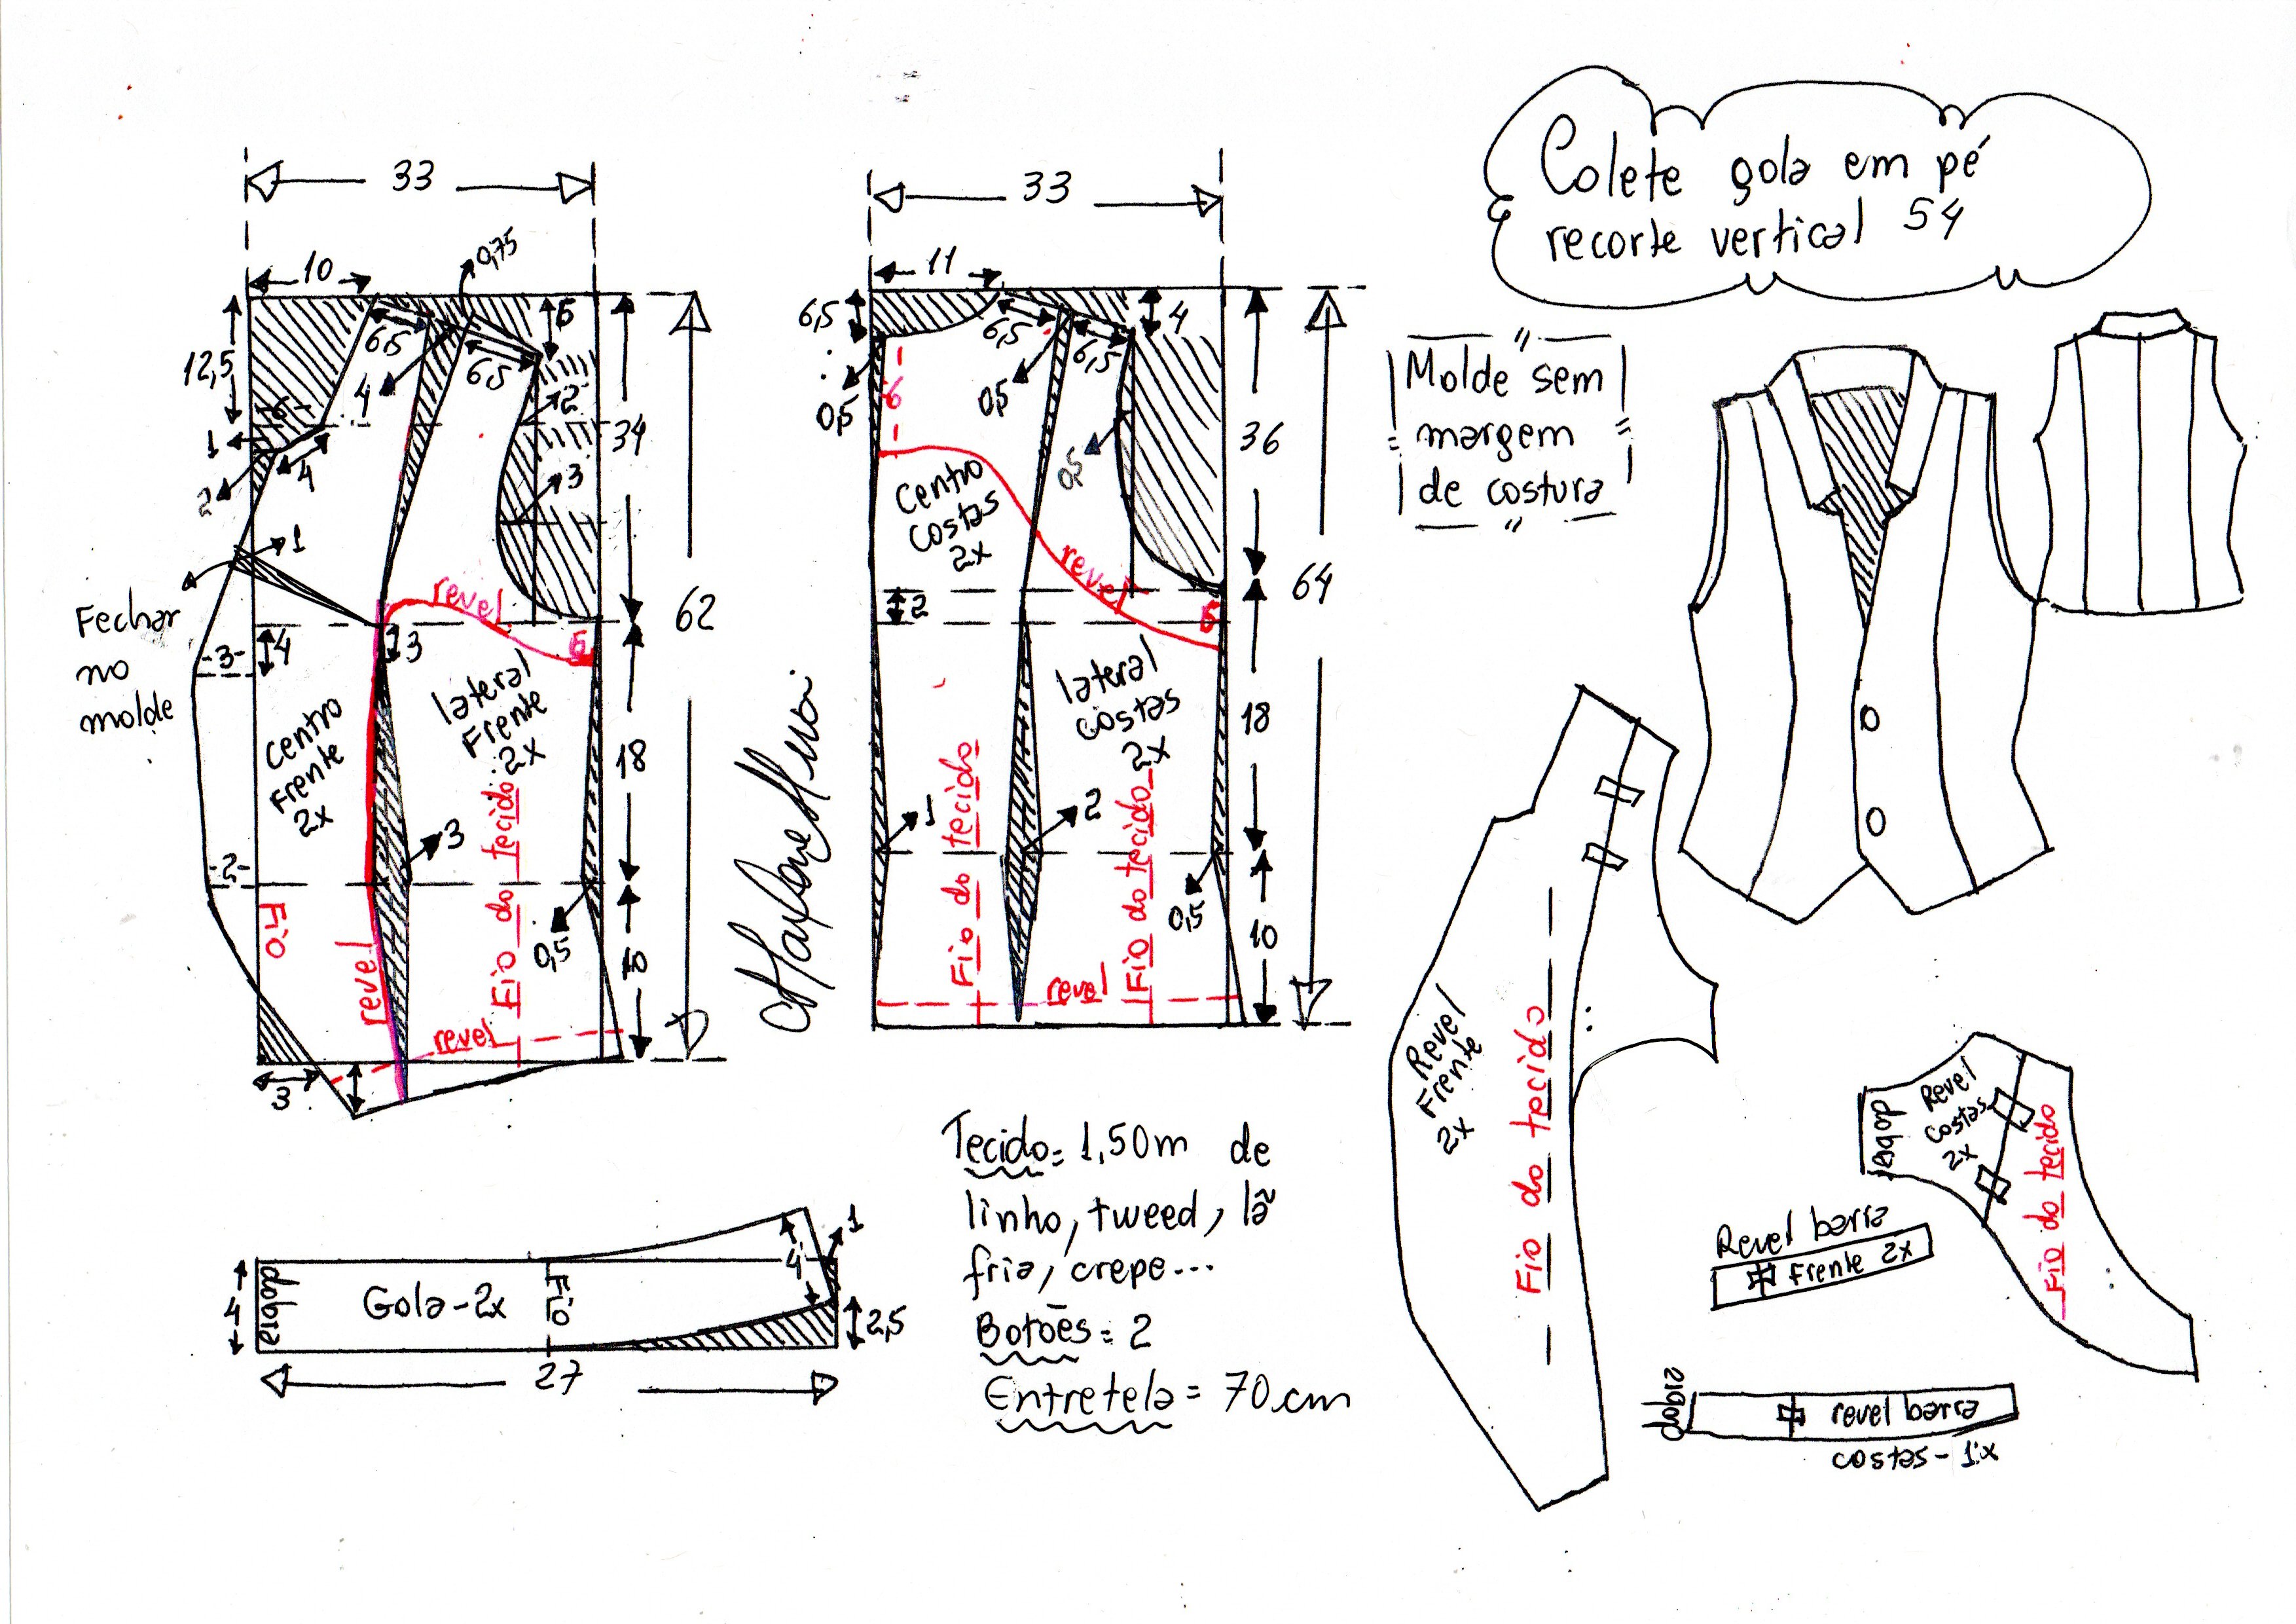 Colete gola em pé
recorte vertical 54
Molde sem
margem
de costura
33
10
0,75
12,5
6,5
6,5
5
4
2
6
1
4
2
3
34
1
Fechar
no
molde
62
revel
5
3
4
3
Centro
Frente
2x
lateral
Frente
2x
18
3
2
Fio
revel
Fio do tecido
0,5
10
revel
3
33
11
6,5
6,5
6,5
4
0,5
0,5
0,5
6
36
Centro
Costas
2x
revel
5
2
64
lateral
costas
2x
18
1
2
Fio do tecido
Fio do tecido
0,5
10
revel
4
dobra
Gola-2x
Fio
4
1
2,5
27
Tecido= 1,50m de
linho, tweed, lã
fria, crepe...
Botões= 2
Entretela= 70cm
Revel
Frente
2x
Fio do tecido
dobra
Revel
costas
2x
Fio do tecido
Revel barra
Frente 2x
dobra
revel barra
costas-1x